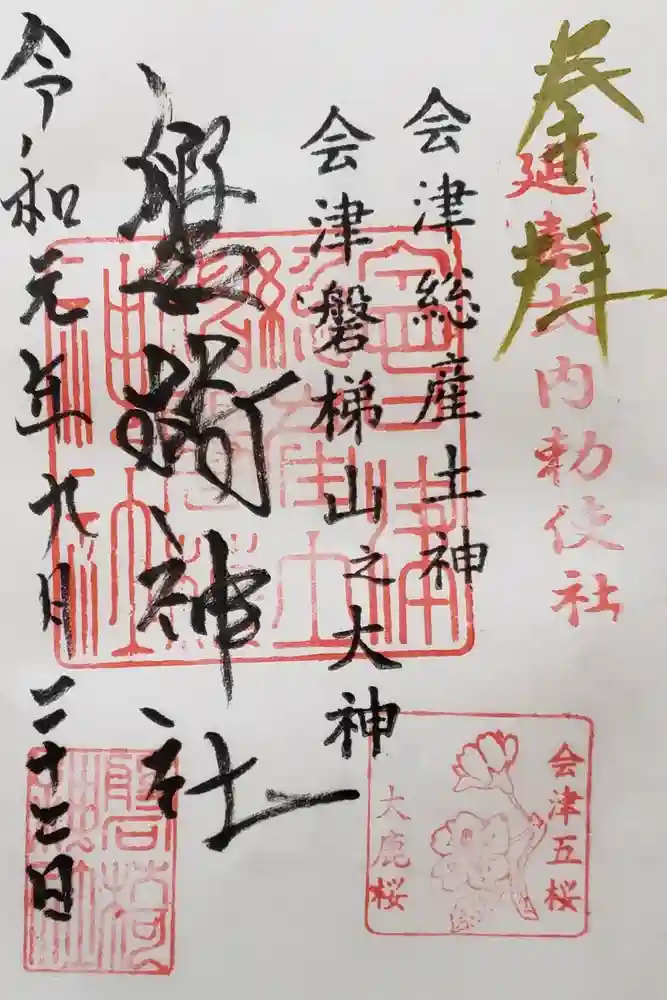 奉拝
延喜式内勅使社
会津総産土神
会津磐梯山之大神
磐椅神社
令和元年九月二十二日
会津五桜
大鹿桜